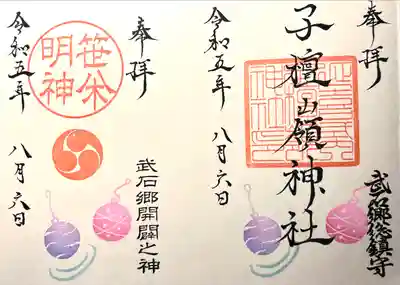 奉拝
子檀嶺神社
武石郷総鎮守
令和五年 八月六日
奉拝
笹焼明神
武石郷開闢之神
令和五年 八月六日